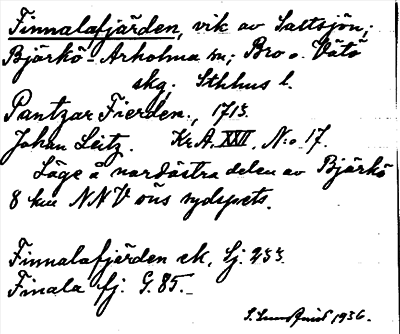 Finnalafjärden, vik av Saltsjön;
Björkö-Arholma sn; Bro o. Vätö
skg. Sthhus l.
Pantzar Fierden., 1713.
Johan Leitz. Kr.A. XXII, N:o 17.
Läge å nordöstra delen av Björkö
8 km NNV öns sydspets.
Finnalafjärden ek, Sj. 233.
Finala fj. G. 85.
1936.